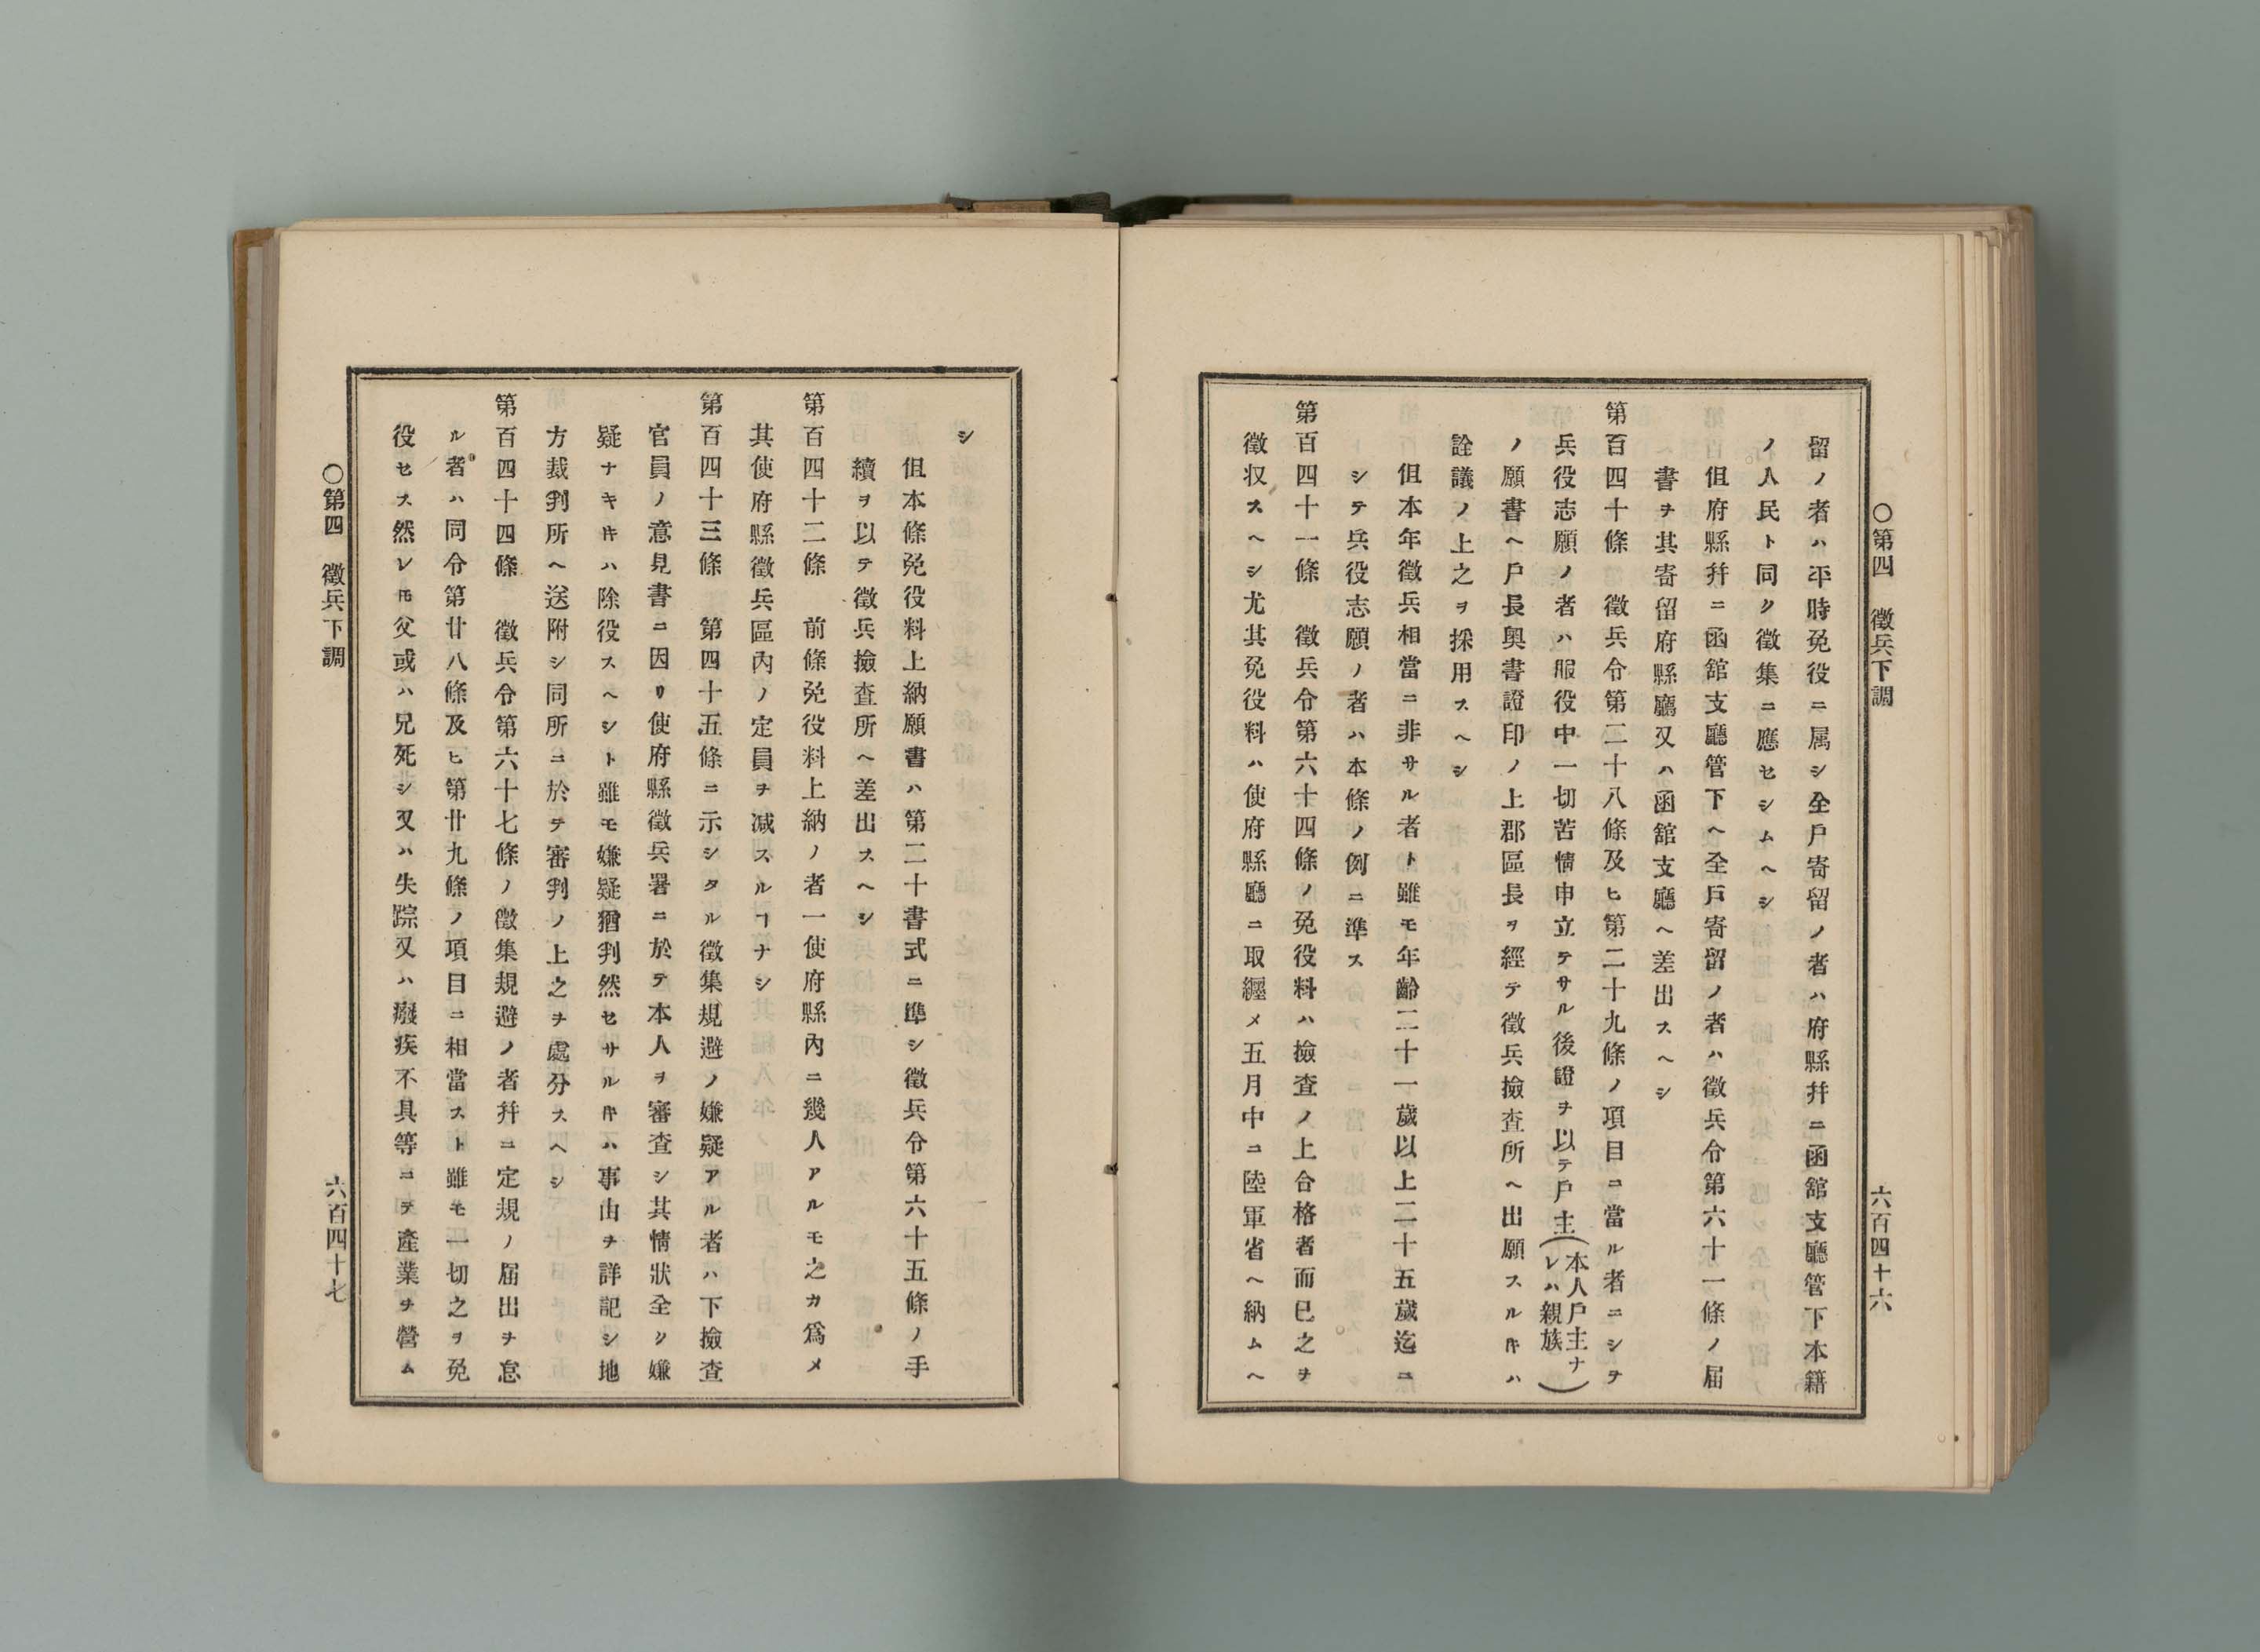 〇第四　徵兵下調
六百四十六
留ノ者ハ平時免役ニ属シ全戶寄留ノ者ハ府縣幷ニ函舘支廳管下本籍
ノ人民ト同ク徵集ニ應セシムヘシ
但府縣幷ニ函舘支廳管下ヘ全戶寄留ノ者ハ徵兵令第六十一條ノ届
書ヲ其寄留府縣廳又ハ函舘支廳ヘ差出スヘシ
第百四十條　徵兵令第二十八條及ヒ第二十九條ノ項目ニ當ル者ニシテ
兵役志願ノ者ハ服役中一切苦情申立テサル後證ヲ以テ戶主(本人戶主ナレハ親族)
ノ願書ヘ戶長奧書證印ノ上郡區長ヲ經テ徵兵撿査所ヘ出願スルヿキハ
詮議ノ上之ヲ採用スヘシ
但本年徵兵相當ニ非サル者ト雖モ年齡二十一歲以上二十五歲迄ニ
シテ兵役志願ノ者ハ本條ノ例ニ準ス
第百四十一條　徵兵令第六十四條ノ免役料ハ撿査ノ上合格者而已之ヲ
徵収スヘシ尤其免役料ハ使府縣廳ニ取纒メ五月中ニ陸軍省ヘ納ムヘ
シ
但本條免役料上納願書ハ第二十書式ニ準シ徵兵令第六十五條ノ手
續ヲ以テ徵兵撿査所ヘ差出スヘシ
第百四十二條　前條免役料上納ノ者一使府縣內ニ幾人アルモ之カ爲メ
其使府縣徵兵區內ノ定員ヲ减スルヿナシ
第百四十三條　第四十五條ニ示シタル徵集規避ノ嫌疑アル者ハ下撿査
官員ノ意見書ニ因リ使府縣徵兵署ニ於テ本人ヲ審查シ其情狀全ク嫌
疑ナキ𪜈ハ除役スヘシト雖モ嫌疑猶判然セサル𪜈ハ事由ヲ詳記シ地
方裁判所ヘ送附シ同所ニ於テ審判ノ上之ヲ處分スヘシ
第百四十四條　徵兵令第六十七條ノ徵集規避ノ者幷ニ定規ノ届出ヲ怠
ル者ハ同令第廿八條及ヒ第廿九條ノ項目ニ相當スト雖モ一切之ヲ免
役セス然レ𪜈父或ハ兄死シ又ハ失踪又ハ癈疾不具等ニテ產業ヲ營ム
〇第四　徵兵下調
六百四十七